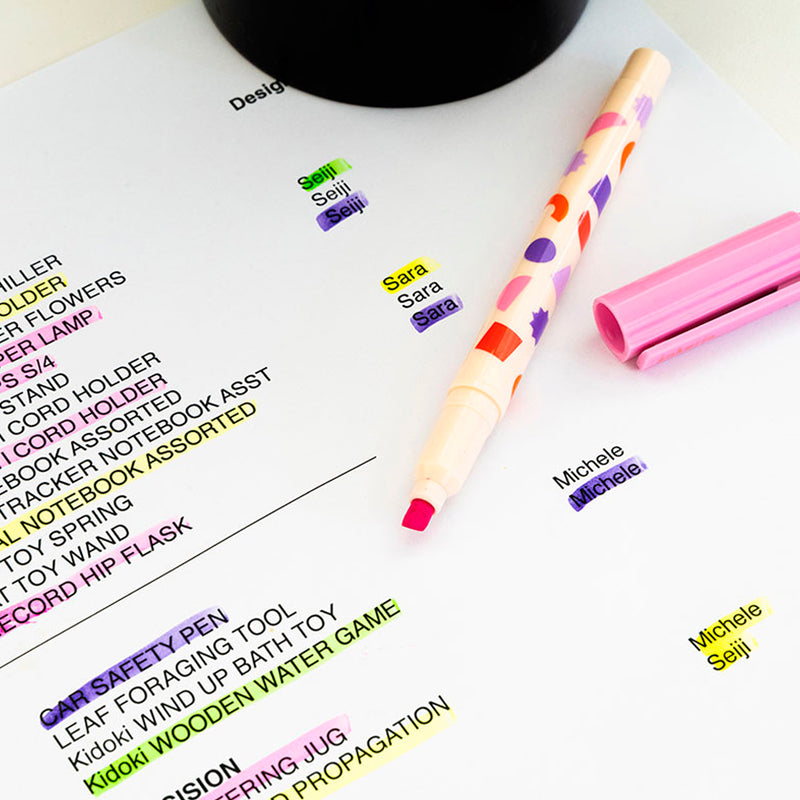 Desig
Seiji
Seiji
Seiji
Sara
Sara
Sara
HILLER
OLDER
ER FLOWERS
PER LAMP
PS S/4
STAND
I CORD HOLDER
I CORD HOLDER
EBOOK ASSORTED
TRACKER NOTEBOOK ASST
AL NOTEBOOK ASSORTED
TOY SPRING
T TOY WAND
ECORD HIP FLASK
Michele
Michele
Michele
Seiji
CAR SAFETY PEN
LEAF FORAGING TOOL
Kidoki WIND UP BATH TOY
Kidoki WOODEN WATER GAME
CISION
TERING JUG
D PROPAGATION